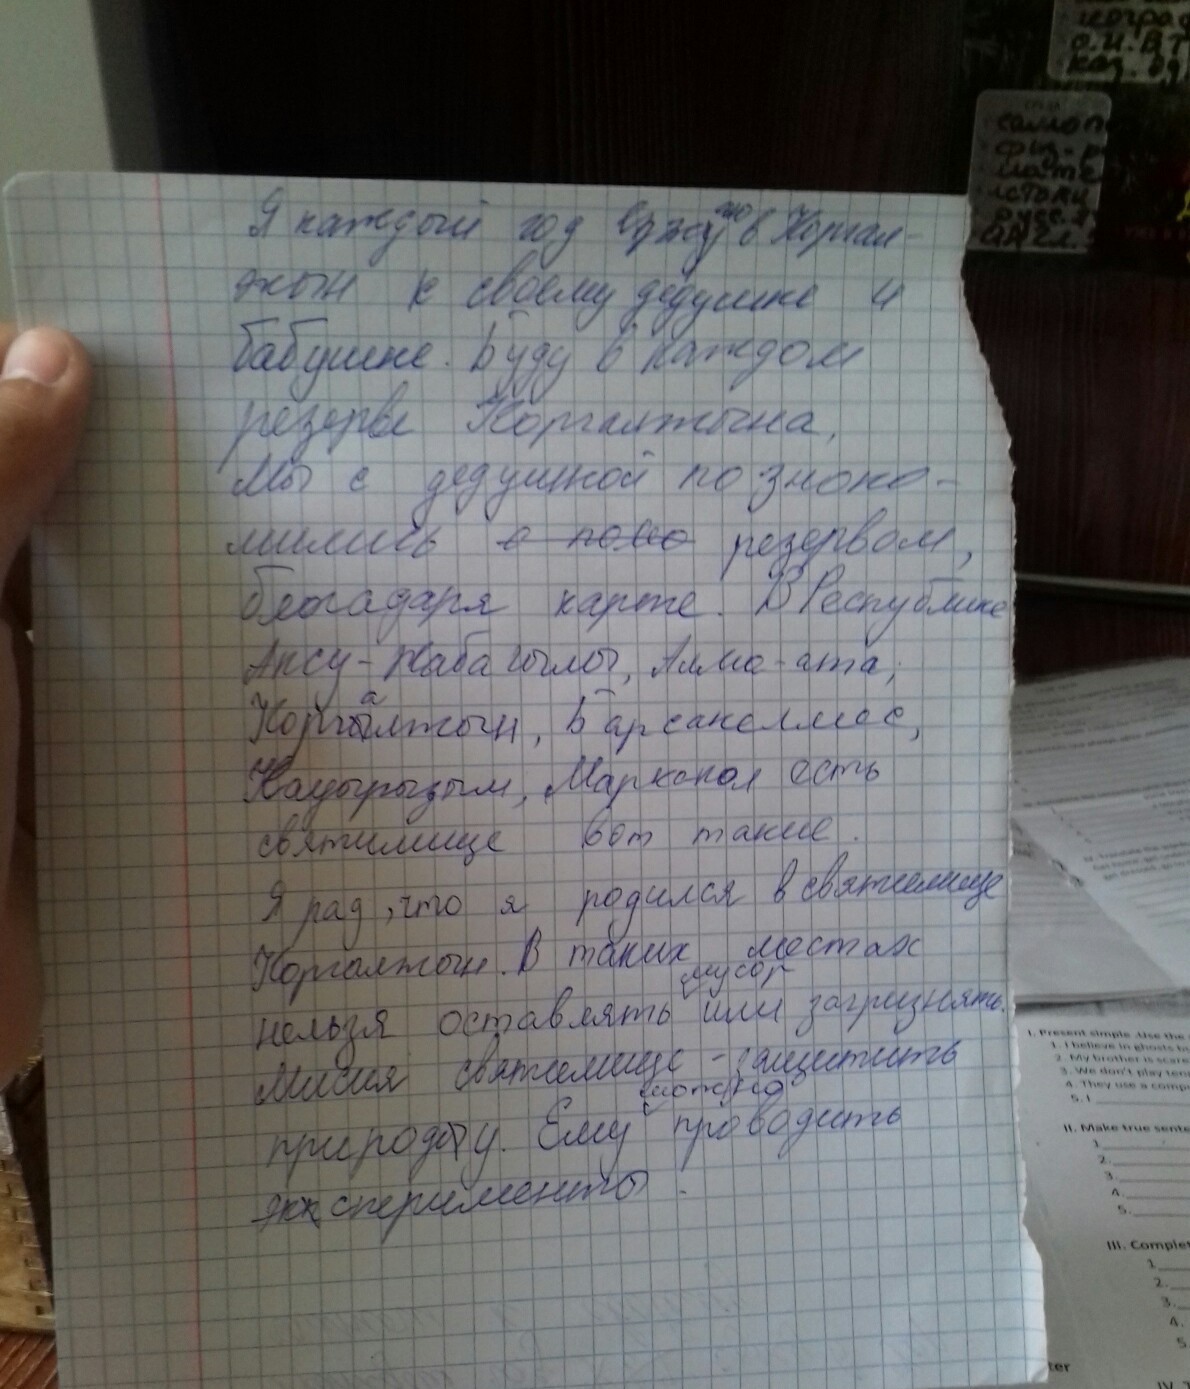 Я каждый год езжу в Коргал-
жын к своему дедушке и
бабушке. Буду в каждом
резерве Коргалжына,
Мы с дедушкой познако-
мились резервом,
благадаря карте. В Республике
Аксу-Жабаглы, Алма-ата,
Коргалжын, Барсакелмес,
Науырызым, Маркакол есть
святилище вот такие.
Я рад, что я родился в святилище
Коргалжын. В таких местах
нельзя оставлять мусор или загрязнять.
Миссия святилище - защитить
природу. Ему можно проводить
эксперименты.
географ
о.и.в.т
каз. яз
СРЕДА
физ-р
русс.
англ.
I. Present simple .Use the
1. I believe in ghosts b
2. My brother is scare
3. We don't play tenn
4. They use a comp
5. I
II. Make true sente
1.
2.
3.
4.
5.
III. Complet
1.
2.
3.
4.
5.